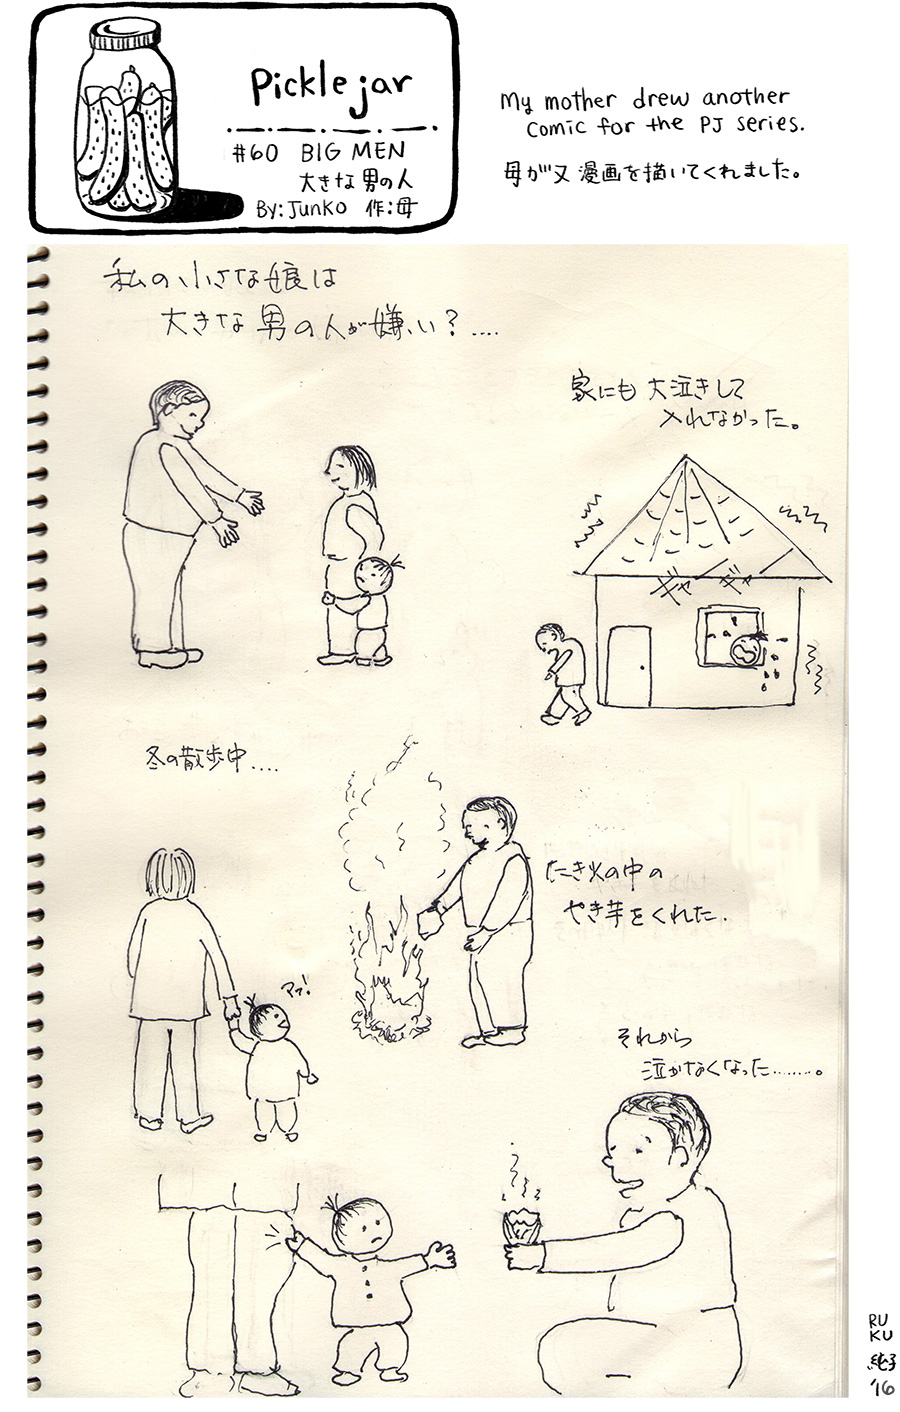 Pickle jar
#60 BIG MEN
大きな男の人
By: Junko 作:母
My mother drew another
comic for the PJ series.
母が又漫画を描いてくれました。
私の小さな娘は
大きな男の人が嫌い?....
家にも大泣きして
入れなかった。
ギャーギャー
冬の散歩中....
アッ!
たき火の中の
やき芋をくれた.
それから
泣かなくなった.........。
RU
KU
純子
'16